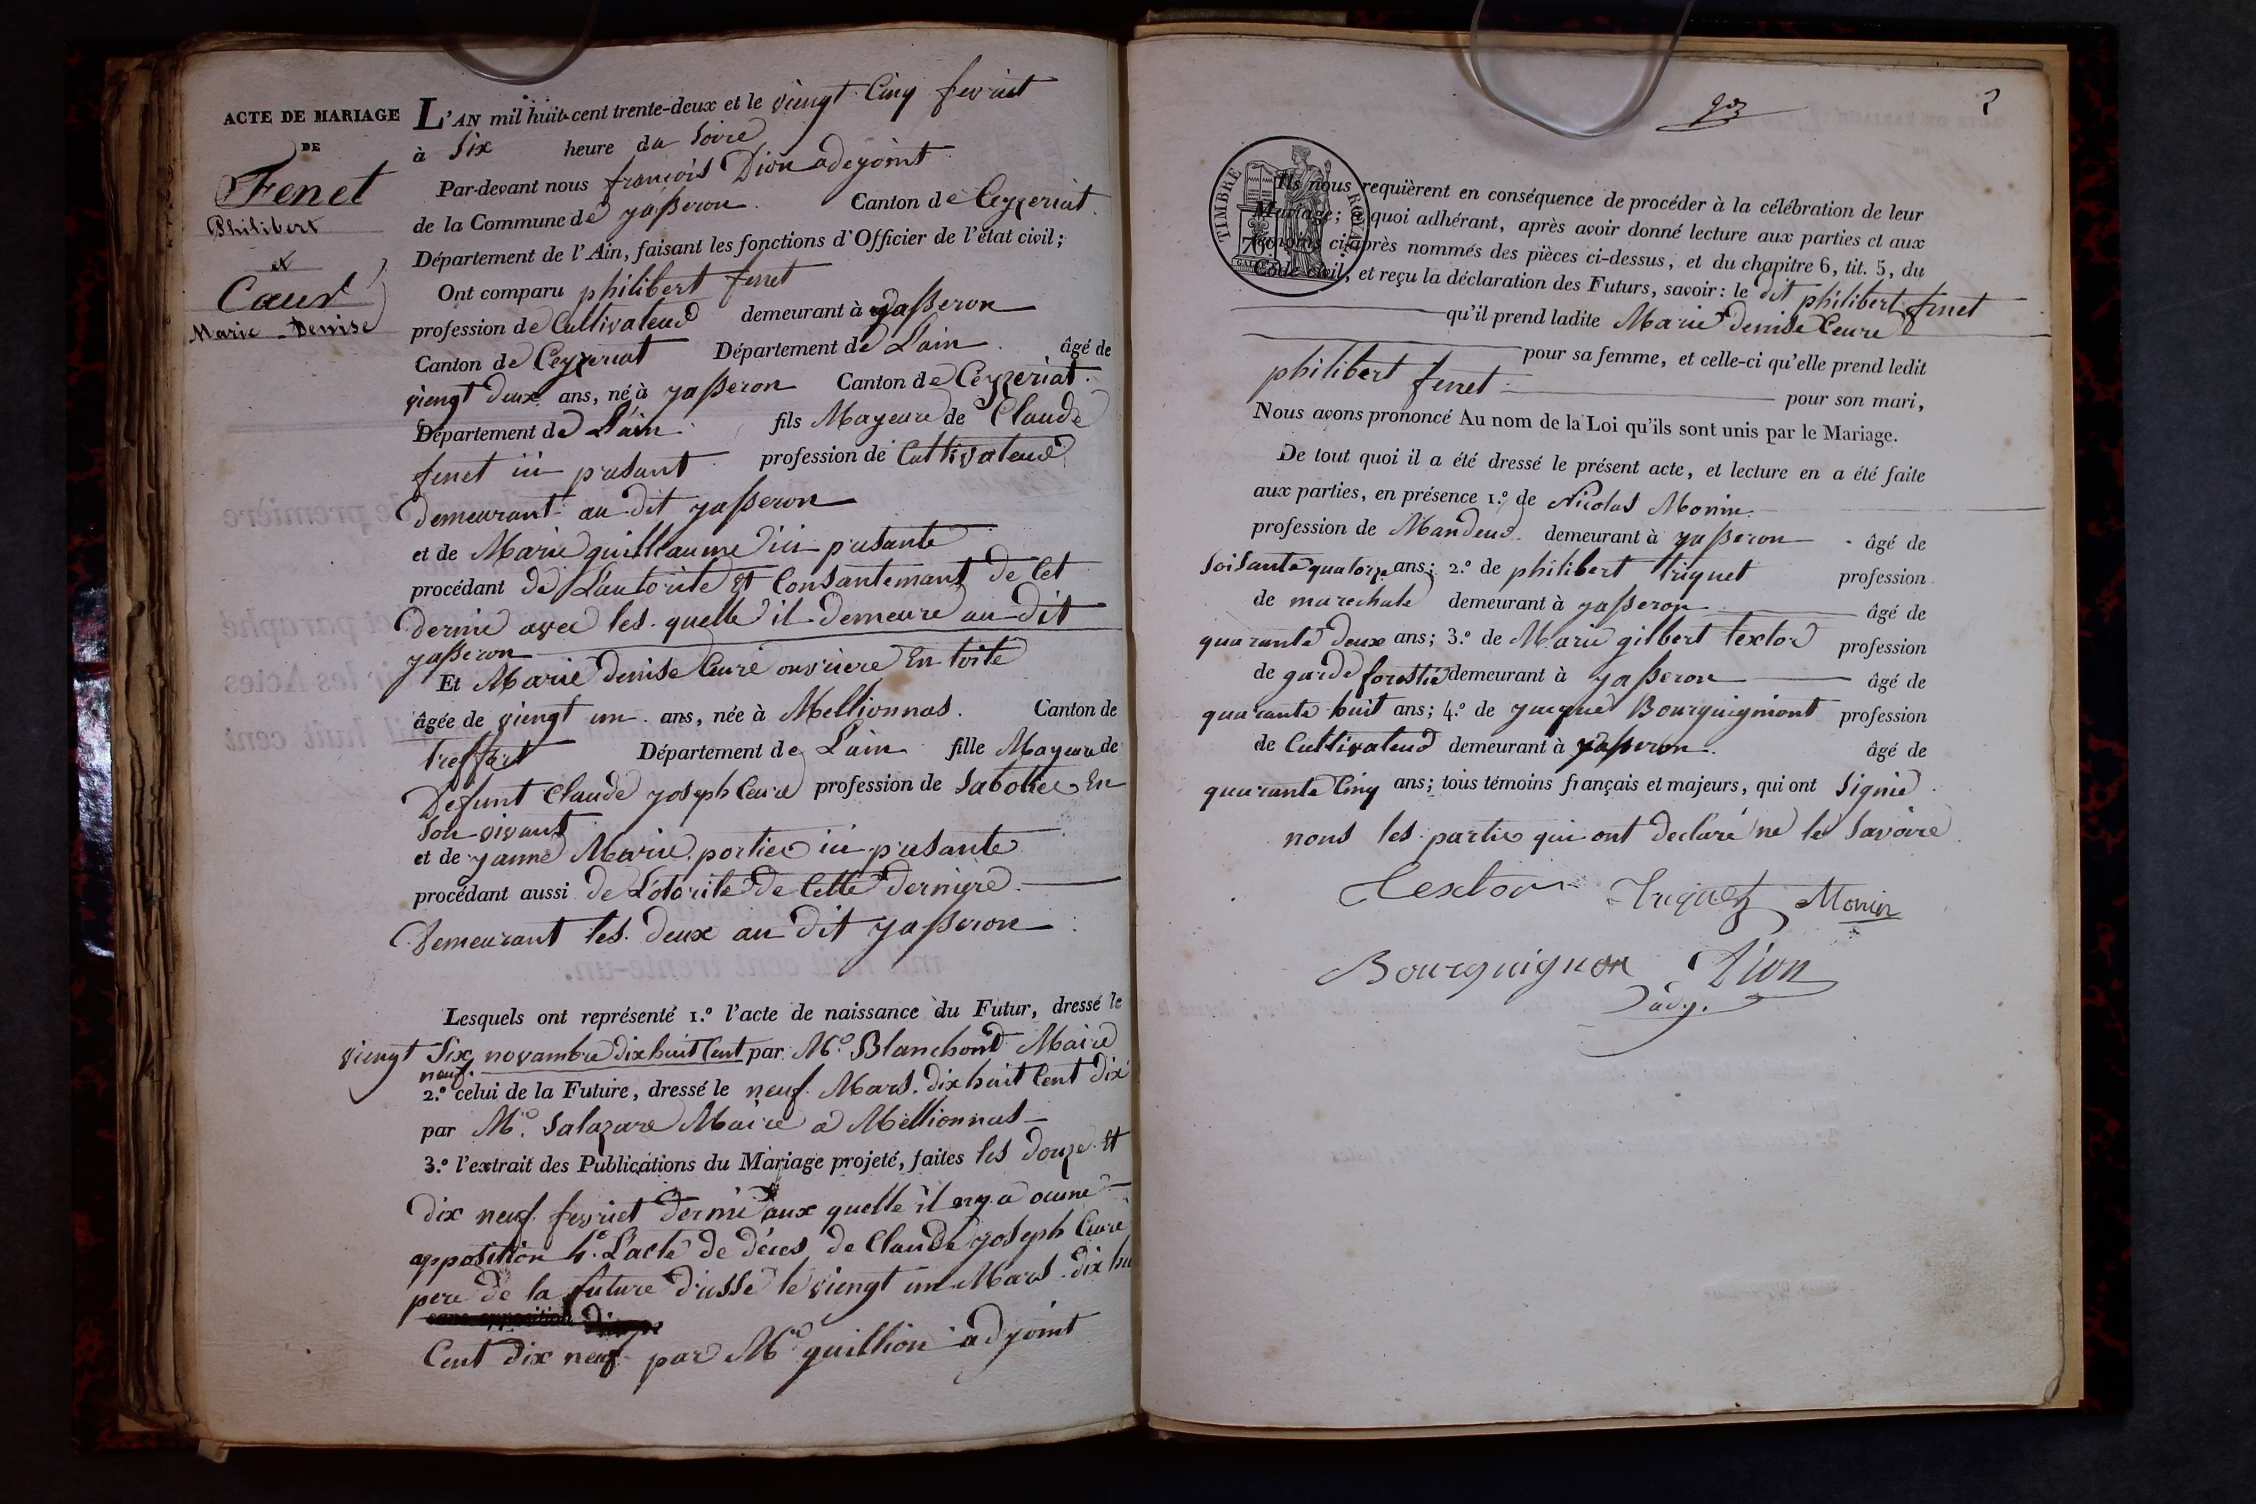 ACTE DE MARIAGE
DE
Fenet
Philibert
et
Cœur
Marie-Denise
L'AN mil huit cent trente-deux et le viengt Cinq fevriet
à Six heure du Soire
Par-devant nous françois Dion adeyoint
de la Commune de yasseron Canton de Ceyzeriat
Département de l'Ain, faisant les fonctions d'Officier de l'état civil;
Ont comparu philibert fenet
profession de Cultivateur demeurant à yasseron
Canton de Ceyzeriat Département de L'ain âgé de
viengt deux ans, né à yasseron Canton de Ceyzeriat
Département de L'ain fils Mayeure de Claude
fenet ici présant profession de Cultivateur
demeurant au dit yasseron
et de Marie guilleaume ici présante
procédant de L'autorité Et Consantemant de Cet
dernié avec les quelle il demeure au dit
yasseron
Et Marie denise Ceure ouvriere En toite
âgée de viengt un ans, née à Mellionnas Canton de
treffort Département de L'ain fille Mayeure de
Defunt Claude yoseph Ceure profession de Sabotiée En
Son vivant
et de yanne Marie portier ici présante
procédant aussi de L'otorité de Cette derniere
Demeurant les deux au dit yasseron
Lesquels ont représenté 1.º l'acte de naissance du Futur, dressé le
viengt Six novambre dix huit Cent par Mr Blanchond Maire
neuf
2.º celui de la Future, dressé le neuf Mars dix huit Cent dix
par Mr Salazare Maire a Mellionnas
3.º l'extrait des Publications du Mariage projeté, faites les douze Et
dix neuf fevriet dernié aux quelle il ny a ocune
opposition 4º L'acte de déces de Claude yoseph Ceure
pere de la future dressé le viengt un Mars dix hu
Cent dix neuf par Mr guillion adyoint
2
TIMBRE ROYAL
Ils nous requièrent en conséquence de procéder à la célébration de leur
Mariage; à quoi adhérant, après avoir donné lecture aux parties et aux
témoins ci-après nommés des pièces ci-dessus, et du chapitre 6, tit. 5, du
Code civil, et reçu la déclaration des Futurs, savoir: le dit philibert fenet
qu'il prend ladite Marie denise Ceure
pour sa femme, et celle-ci qu'elle prend ledit
philibert fenet pour son mari,
Nous avons prononcé Au nom de la Loi qu'ils sont unis par le Mariage.
De tout quoi il a été dressé le présent acte, et lecture en a été faite
aux parties, en présence 1.º de Nicolas Monin
profession de Mandeur demeurant à yasseron âgé de
Soisante quatorze ans; 2.º de philibert triquet profession
de marechale demeurant à yasseron âgé de
quarante deux ans; 3.º de Marie gilbert textor profession
de garde forestié demeurant à yasseron âgé de
quarante huit ans; 4.º de yacques Bourguigniont profession
de Cultivateur demeurant à yasseron âgé de
quarante Cinq ans; tous témoins français et majeurs, qui ont Signié
nons les partie qui ont declaré ne le Savoire
Textor Triquet Monin
Bourguignon Dion
adj.